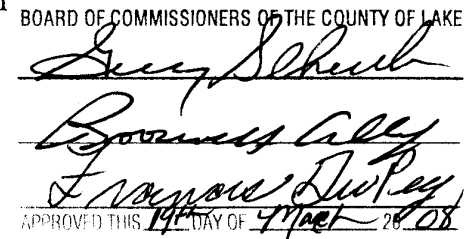 BOARD OF COMMISSIONERS OF THE COUNTY OF LAKE
Gerry Scheub
Roosevelt Allen
Frances DuPey
APPROVED THIS 19th DAY OF March 20 08